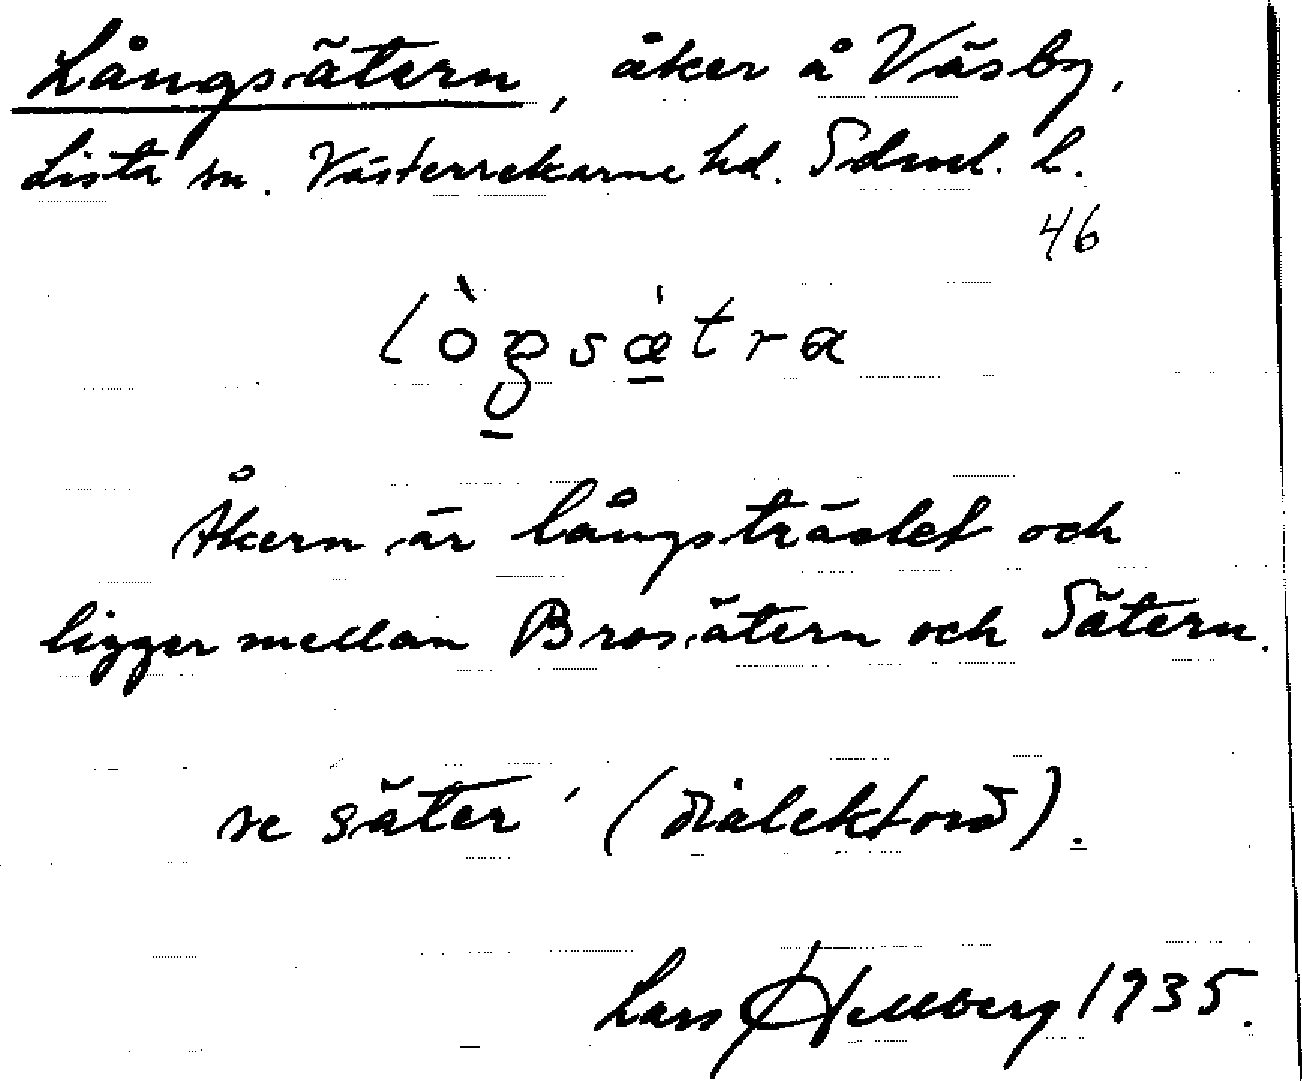 Långsätern, åker å Väsby,
Lista sn. Västerrekarne hd. Sdml. l.
46
Åkern är långsträckt och
ligger mellan Brosätern och Sätern.
se säter (dialektord).
Lars Hellberg 1935.